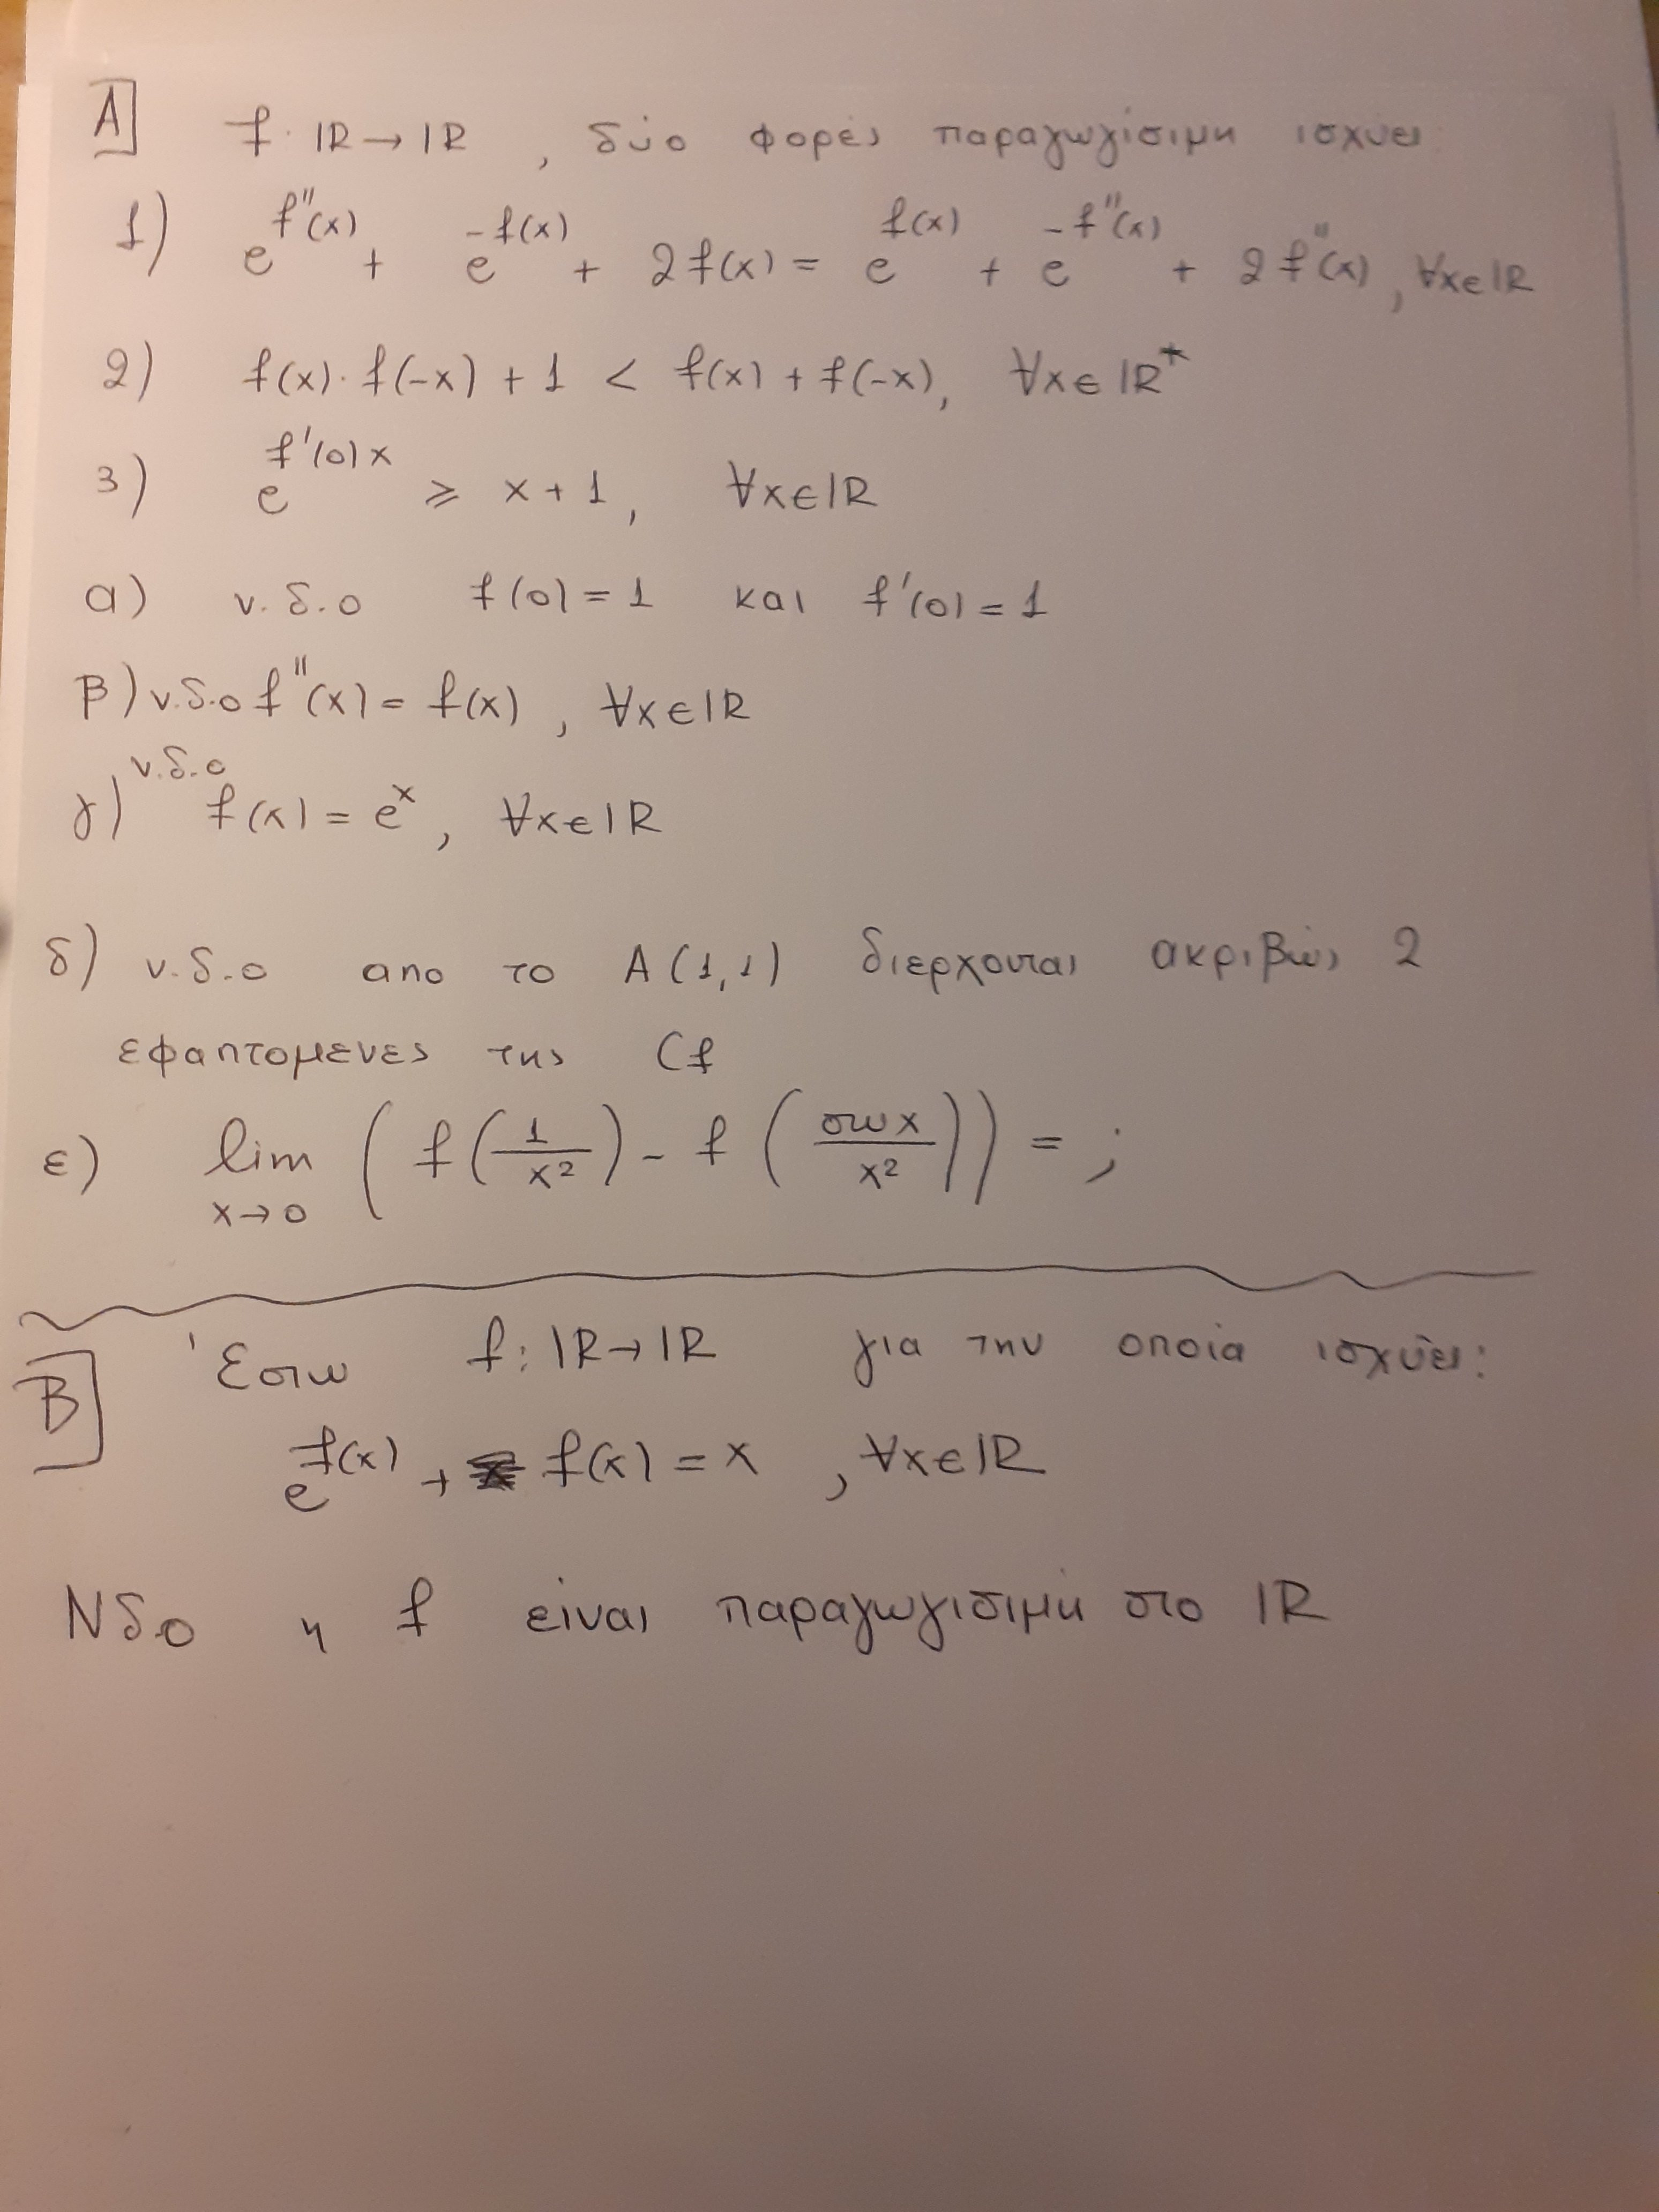 Α] f: ℝ → ℝ , δύο φορές παραγωγίσιμη ισχύει
1) e^{f''(x)} + e^{-f(x)} + 2f(x) = e^{f(x)} + e^{-f''(x)} + 2f''(x), ∀x∈ℝ
2) f(x)·f(-x) + 1 < f(x) + f(-x), ∀x∈ℝ*
3) e^{f'(0)x} ≥ x+1, ∀x∈ℝ
α) ν.δ.ο f(0) = 1 και f'(0) = 1
β) ν.δ.ο f''(x) = f(x), ∀x∈ℝ
γ) ν.δ.ο f(x) = e^x, ∀x∈ℝ
δ) ν.δ.ο απο το Α(1,1) διερχονται ακριβώς 2
εφαπτομενες της Cf
ε) lim_{x→0} ( f(1/x²) - f(συνx/x²) ) = ;
Β] Έστω f: ℝ→ℝ για την οποία ισχύει:
e^{f(x)} + f(x) = x , ∀x∈ℝ
Νδ.ο η f είναι παραγωγισιμή στο ℝ